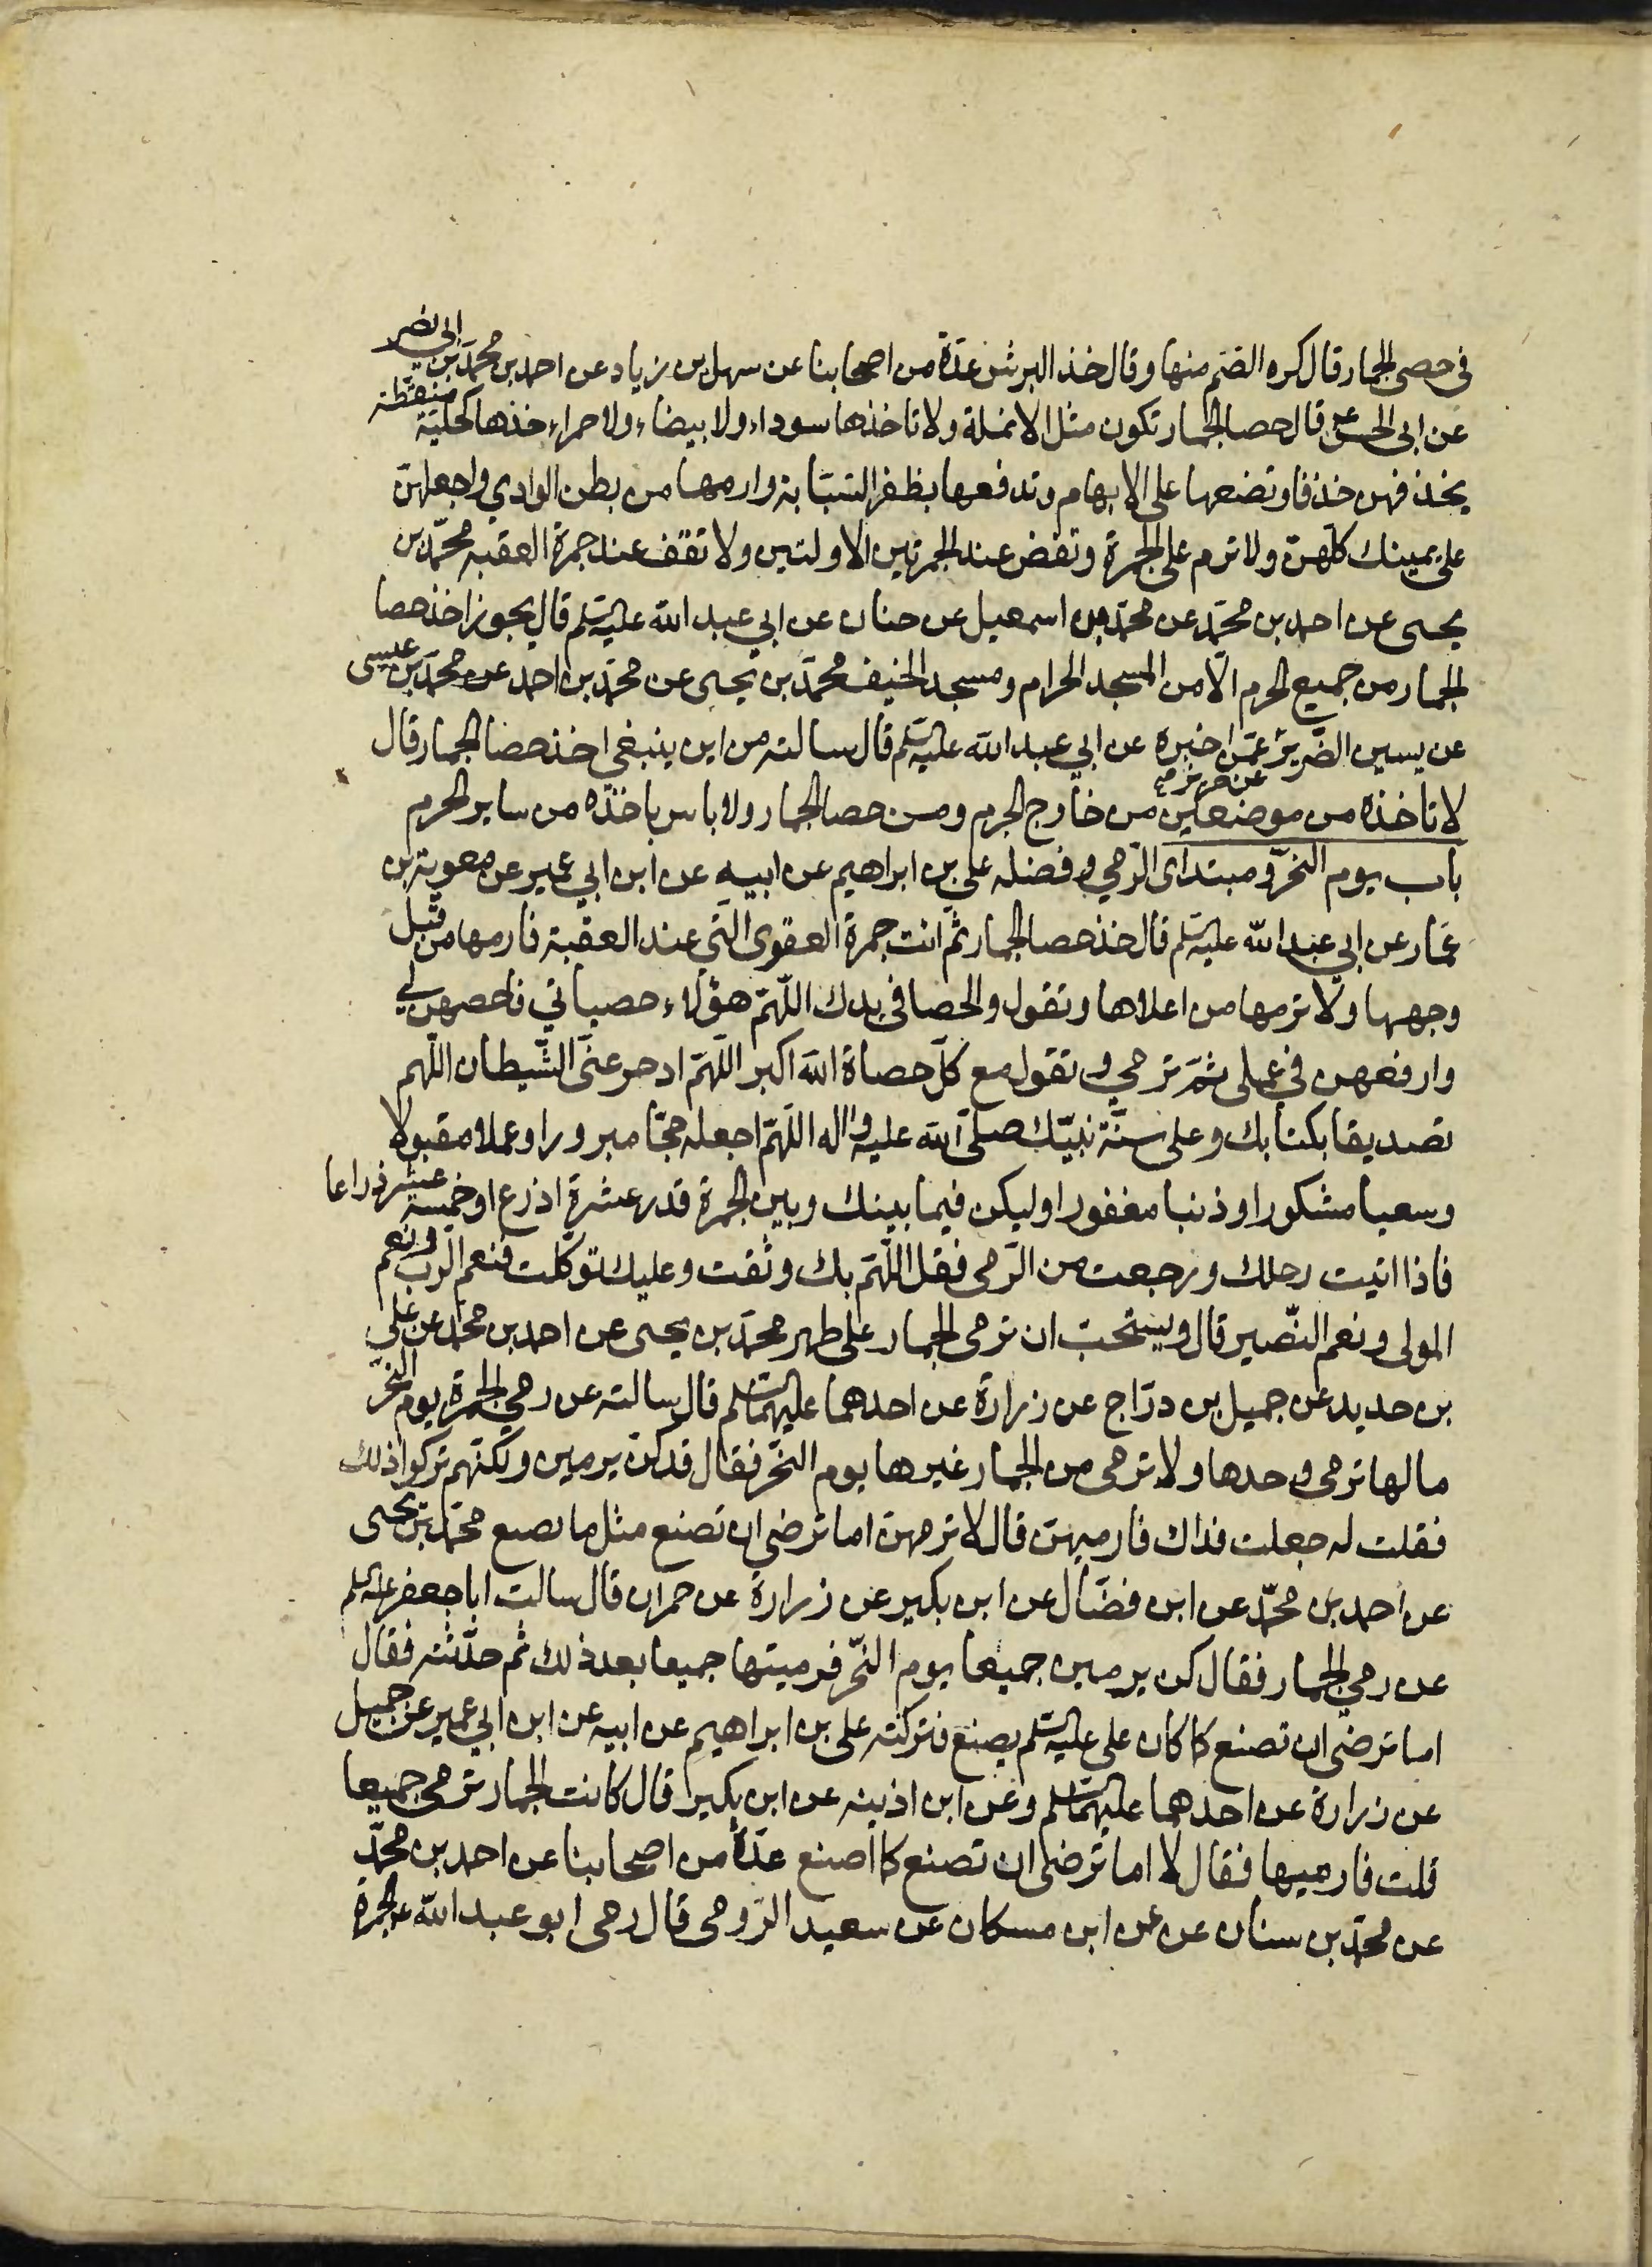 في حصى الجمار قال كره الصم منها وقال خذ البرش عدّة من اصحابنا عن سهل بن زياد عن احمد بن محمد بن ابي نصر
عن ابي الحسن ع قال حصا الجمار تكون مثل الانملة ولا تاخذها سوداء ولا بيضاء ولا حمراء خذها كحليّة منقطة
يخذفهن خذفا وتضعها على الابهام وتدفعها بظفر السبّابة وارمها من بطن الوادي واجعلهنّ
على يمينك كلهنّ ولا ترم على الجمرة وتقف عند الجمرتين الاولتين ولا تقف عند جمرة العقبه محمّد بن
يحيى عن احمد بن محمّد عن محمّد بن اسمعيل عن حنان عن ابي عبد الله عليه السلم قال يجوز اخذ حصا
الجمار من جميع الحرم الّا من المسجد الحرام ومسجد الخيف محمّد بن يحيى عن محمّد بن احمد عن محمّد بن عيسى
عن يسين الضّرير عن حريز عمّن اخبره عن ابي عبد الله عليه السلم قال سالته من اين ينبغي اخذ حصا الجمار قال
لا تاخذه من موضعين من خارج الحرم ومن حصا الجمار ولا باس باخذه من ساير الحرم
باب يوم النحر ومبتداى الرّمي وفضله علي بن ابراهيم عن ابيه عن ابن ابي عمير عن معوية بن
عمّار عن ابي عبد الله عليه السلم قال خذ حصا الجمار ثمّ ائت جمرة القصوى التي عند العقبة فارمها من قبل
وجهها ولا ترمها من اعلاها وتقول والحصا في يدك اللّهمّ هؤلاء حصياتي فاحصهن لي
وارفعهن في عملي ثمّ ترمي وتقول مع كلّ حصاة الله اكبر اللّهمّ ادحر عنّي الشّيطان اللّهم
تصديقا بكتابك وعلى سنّة نبيّك صلى الله عليه واله اللّهمّ اجعله حجّا مبرورا وعملا مقبولا
وسعيا مشكورا وذنبا مغفورا وليكن فيما بينك وبين الجمرة قدر عشرة اذرع او خمسة عشر ذراعا
فاذا اتيت رحلك ورجعت من الرّمي فقل اللّهمّ بك وثقت وعليك توكّلت فنعم الرّب ونعم
المولى ونعم النّصير قال ويستحبّ ان ترمى الجمار على طهر محمّد بن يحيى عن احمد بن محمّد عن علي
بن حديد عن جميل بن درّاج عن زرارة عن احدهما عليهما السلم قال سالته عن رمي الجمرة يوم النّحر
مالها ترمى وحدها ولا ترمى من الجمار غيرها يوم النّحر فقال قد كنّ يرمين ولكنّهم تركوا ذلك
فقلت له جعلت فداك فارميهنّ قال لا ترمهنّ اما ترضى ان تصنع مثل ما نصنع محمّد بن يحيى
عن احمد بن محمّد عن ابن فضّال عن ابن بكير عن زرارة عن حمران قال سالت ابا جعفر عليه السلم
عن رمي الجمار فقال كن يرمين جميعا يوم النّحر فرميتها جميعا بعد ذلك ثم حدّثته فقال
اما ترضى ان تصنع كما كان علي عليه السلم يصنع فتركته علي بن ابراهيم عن ابيه عن ابن ابي عمير عن جميل
عن زرارة عن احدهما عليهما السلم وعن ابن اذينه عن ابن بكير قال كانت الجمار ترمى جميعا
قلت فارميها فقال لا اما ترضى ان تصنع كما اصنع عدّة من اصحابنا عن احمد بن محمّد
عن محمّد بن سنان عن عن ابن مسكان عن سعيد الرّومي قال رمى ابو عبد الله ع الجمرة